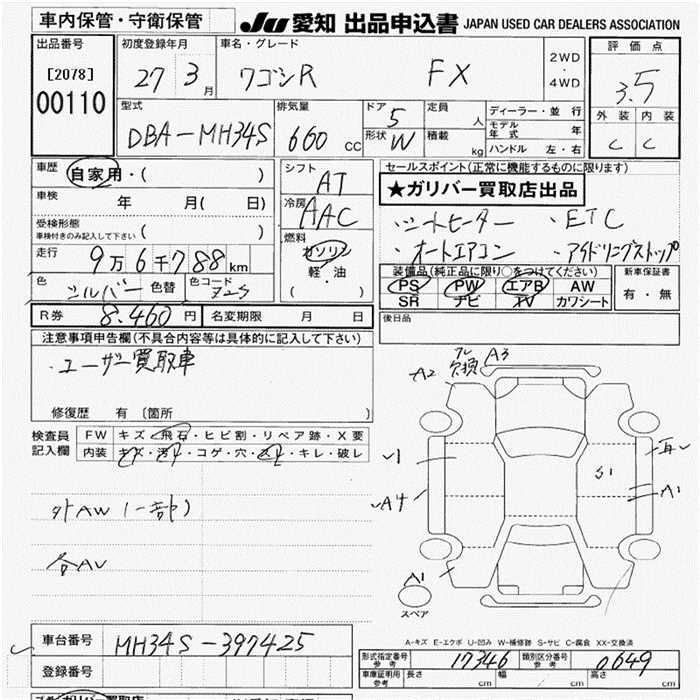 車内保管・守衛保管
JU 愛知 出品申込書 JAPAN USED CAR DEALERS ASSOCIATION
出品番号
[2078]
00110
初度登録年月
27 3 月
車名・グレード
ワゴンR FX
2WD
・
4WD
評価点
3.5
外装 内装
C C
型式
DBA-MH34S
排気量
660 cc
ドア
5
形状
W
定員
人
積載
kg
ディーラー・並行
モデル年式 年
ハンドル 左・右
車歴
自家用・( )
車検
年 月( 日)
受検形態
車検付きのみ記入して下さい ( )
走行
9万6千788km
色
シルバー
色替
色コード
Z2S
シフト
AT
冷房
AAC
燃料
ガソリン
軽・油
( )
セールスポイント(正常に機能するものに限ります)
★ガリバー買取店出品
・シートヒーター ・ETC
・オートエアコン ・アイドリングストップ
装備品(純正品に限り○をつけてください)
PS PW エアB AW
SR ナビ TV カワシート
新車保証書
有・無
R券 8.460 円
名変期限 月 日
後日品
注意事項申告欄(不具合内容等は具体的に記入して下さい)
・ユーザー買取車
修復歴 有 〔箇所 〕
検査員
記入欄
FW キズ・飛石・ヒビ割・リペア跡・X要
内装 キズ・汚レ・コゲ・穴・スレ・キレ・破レ
外AW(一部)
各AU
A2
欠損
A3
A4
S1
A1
A1
スペア
A-キズ E-エクボ U-凹み W-補修跡 S-サビ C-腐食 XX-交換済
車台番号 MH34S-397425
登録番号
形式指定番号
参考
17346
類別区分番号
参考
0649
車庫証明用
参考
長さ
幅
高さ